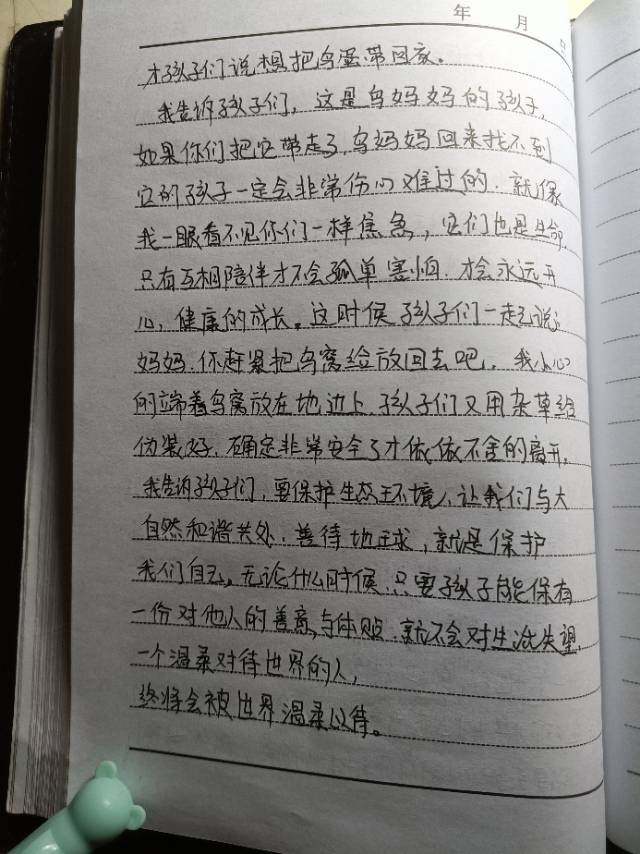 年 月 日
才孩子们说想把鸟蛋带回家。
我告诉孩子们，这是鸟妈妈的孩子，
如果你们把它带走了，鸟妈妈回来找不到
它的孩子一定会非常伤心难过的，就像
我一眼看不见你们一样焦急，它们也是生命，
只有互相陪伴才不会孤单害怕，才会永远开
心，健康的成长。这时候孩子们一起说：
妈妈，你赶紧把鸟窝给放回去吧，我小心
的端着鸟窝放在地边上，孩子们又用杂草给
伪装好，确定非常安全了才依依不舍的离开，
我告诉孩子们，要保护生态环境，让我们与大
自然和谐共处，善待地球，就是保护
我们自己，无论什么时候，只要孩子能保有
一份对他人的善意，与体贴，就不会对生活失望，
一个温柔对待世界的人，
终将会被世界温柔以待。